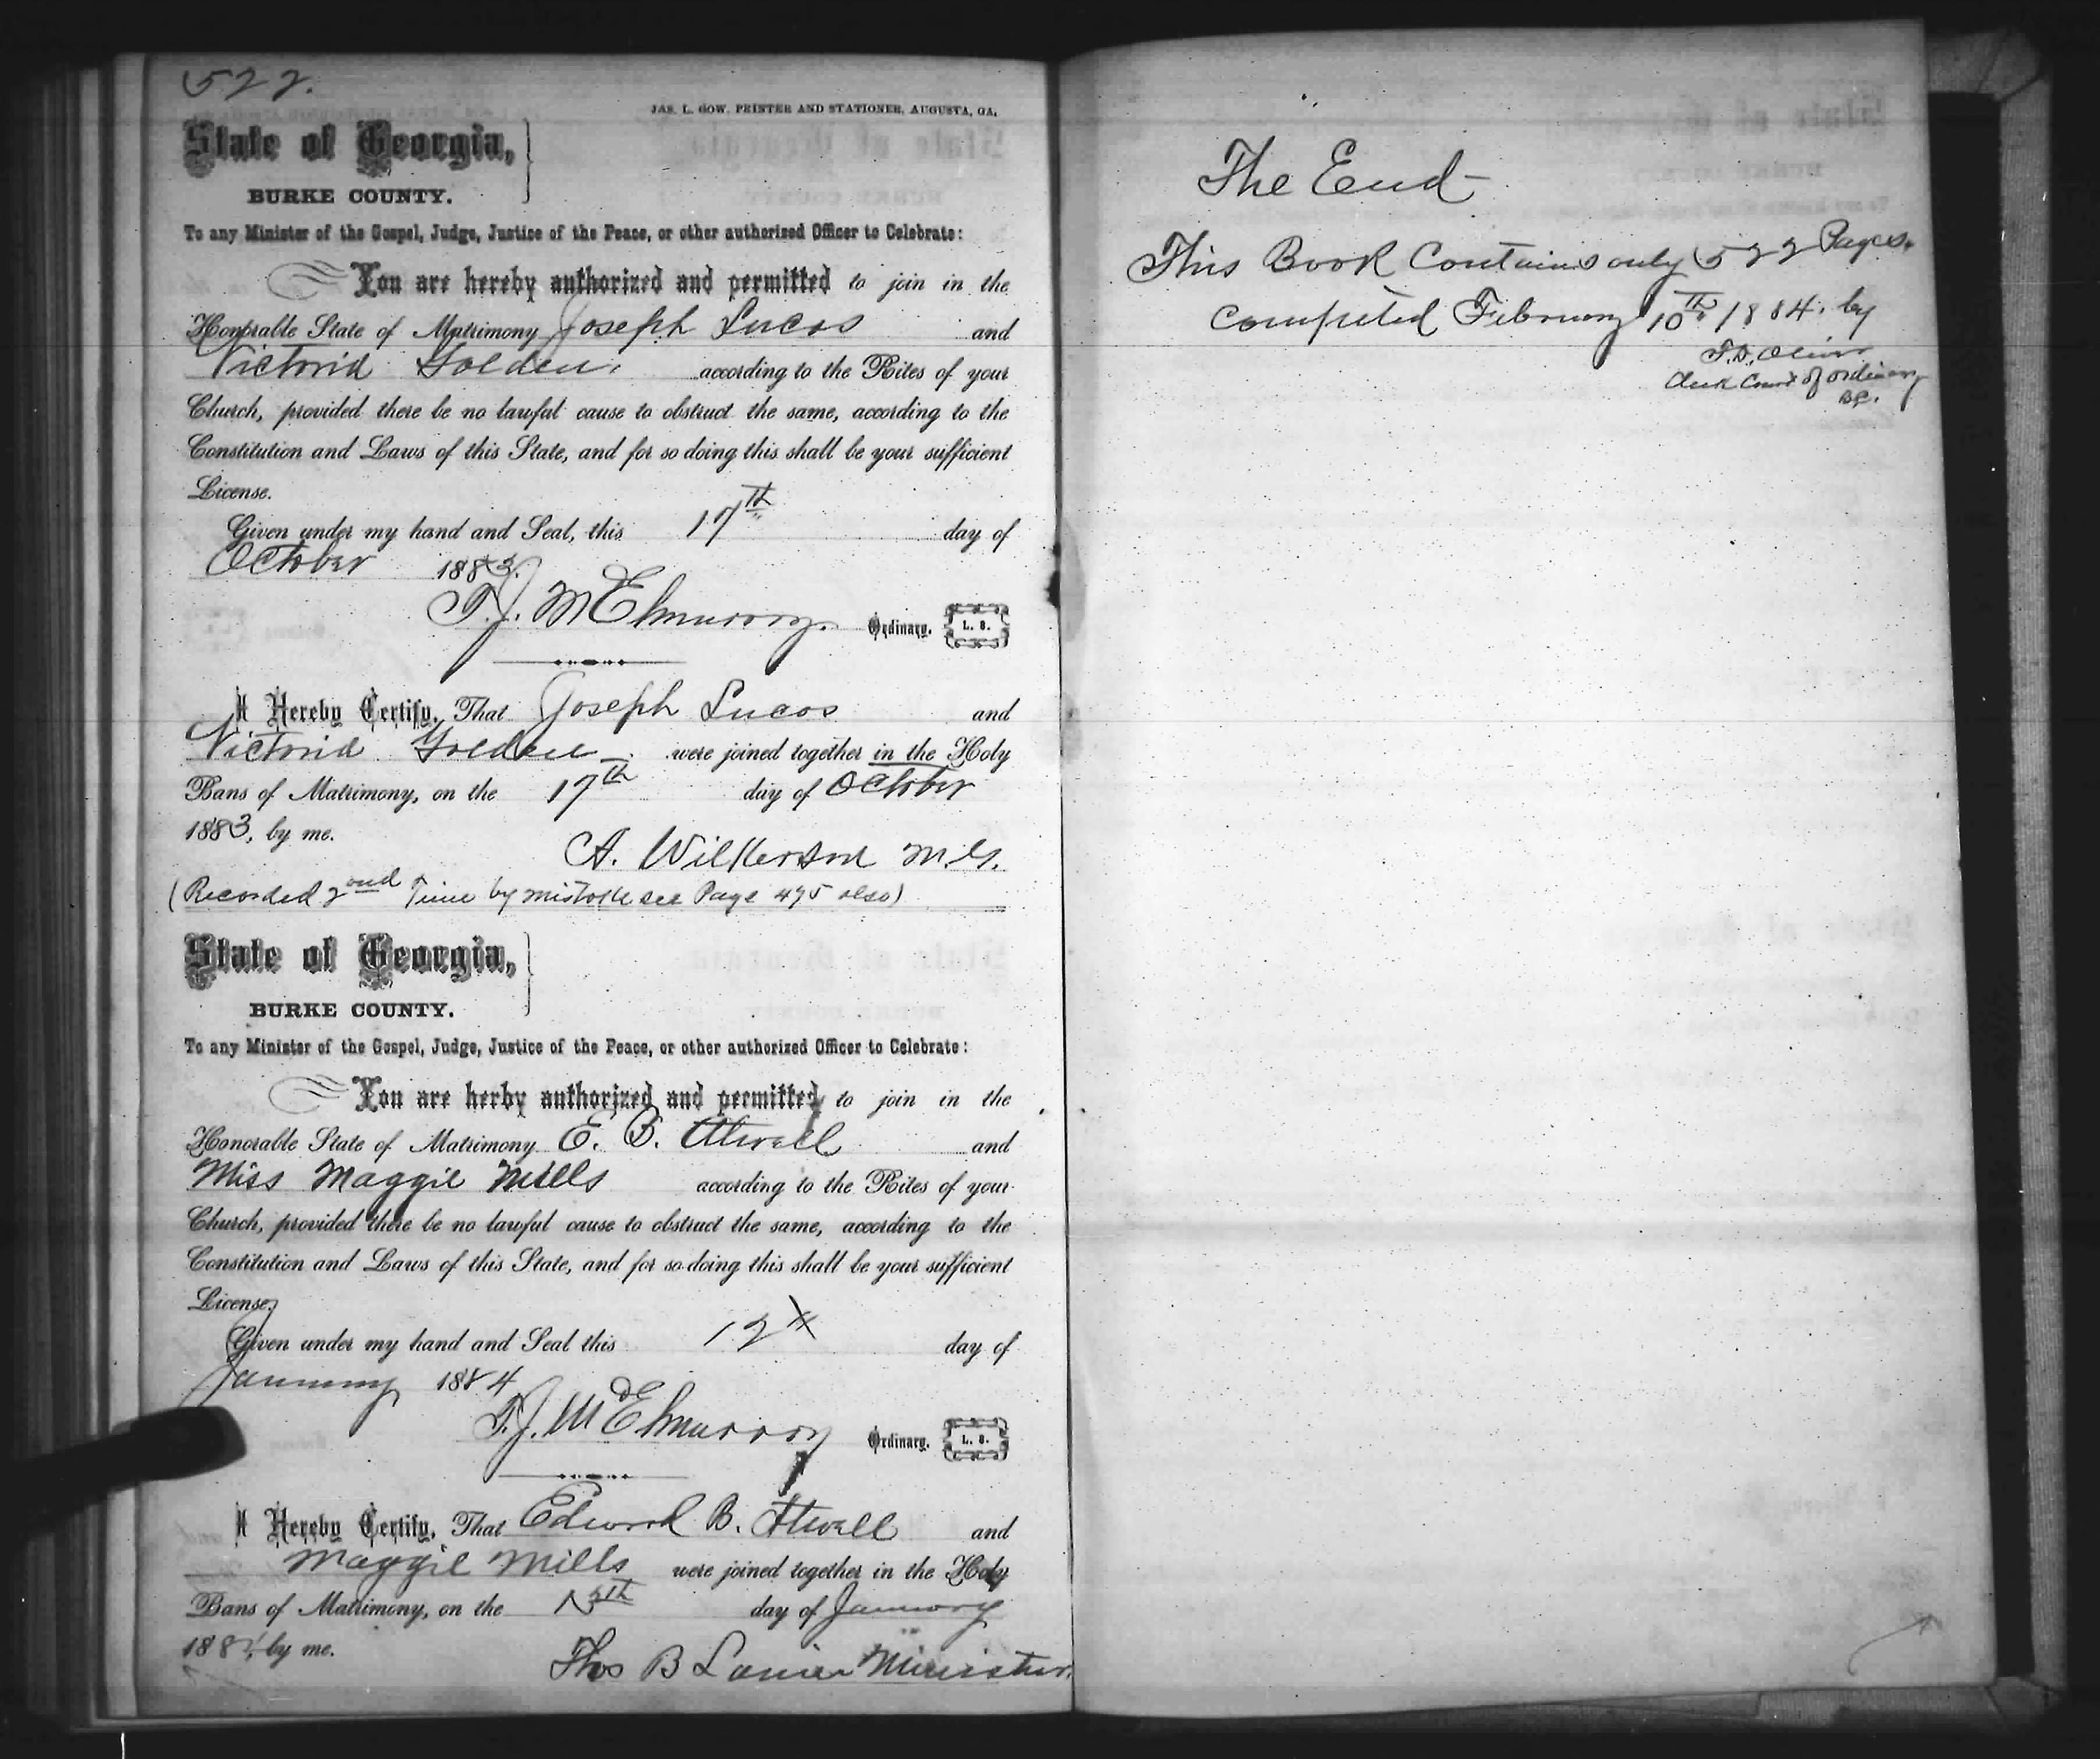 522.
JAS. L. GOW, PRINTER AND STATIONER, AUGUSTA, GA.
State of Georgia,
BURKE COUNTY.
To any Minister of the Gospel, Judge, Justice of the Peace, or other authorized Officer to Celebrate:
You are hereby authorized and permitted to join in the
Honorable State of Matrimony Joseph Lucas and
Victoria Golden. according to the Rites of your
Church, provided there be no lawful cause to obstruct the same, according to the
Constitution and Laws of this State, and for so doing this shall be your sufficient
License.
Given under my hand and Seal, this 17th day of
October 1883.
T. J. McElmurray. Ordinary. L. S.
I Hereby Certify, That Joseph Lucas and
Victoria Golden were joined together in the Holy
Bans of Matrimony, on the 17th day of October
1883, by me.
A. Wilkerson M.G.
(Recorded 2ond Time by mistake see Page 495 also)
State of Georgia,
BURKE COUNTY.
To any Minister of the Gospel, Judge, Justice of the Peace, or other authorized Officer to Celebrate:
You are herby authorized and permitted to join in the
Honorable State of Matrimony E. B. Atwell and
Miss Maggie Mills according to the Rites of your
Church, provided there be no lawful cause to obstruct the same, according to the
Constitution and Laws of this State, and for so doing this shall be your sufficient
License.
Given under my hand and Seal this 12 day of
January 1884
T. J. McElmurray Ordinary. L. S.
I Hereby Certify, That Edward B. Atwell and
Maggie Mills were joined together in the Holy
Bans of Matrimony, on the day of January
1884, by me.
Thos B Lanier Minister.
The End
This Book Contains only 522 Pages.
Completed February 10th 1884. by
Clerk Court of Ordinary
B.C.